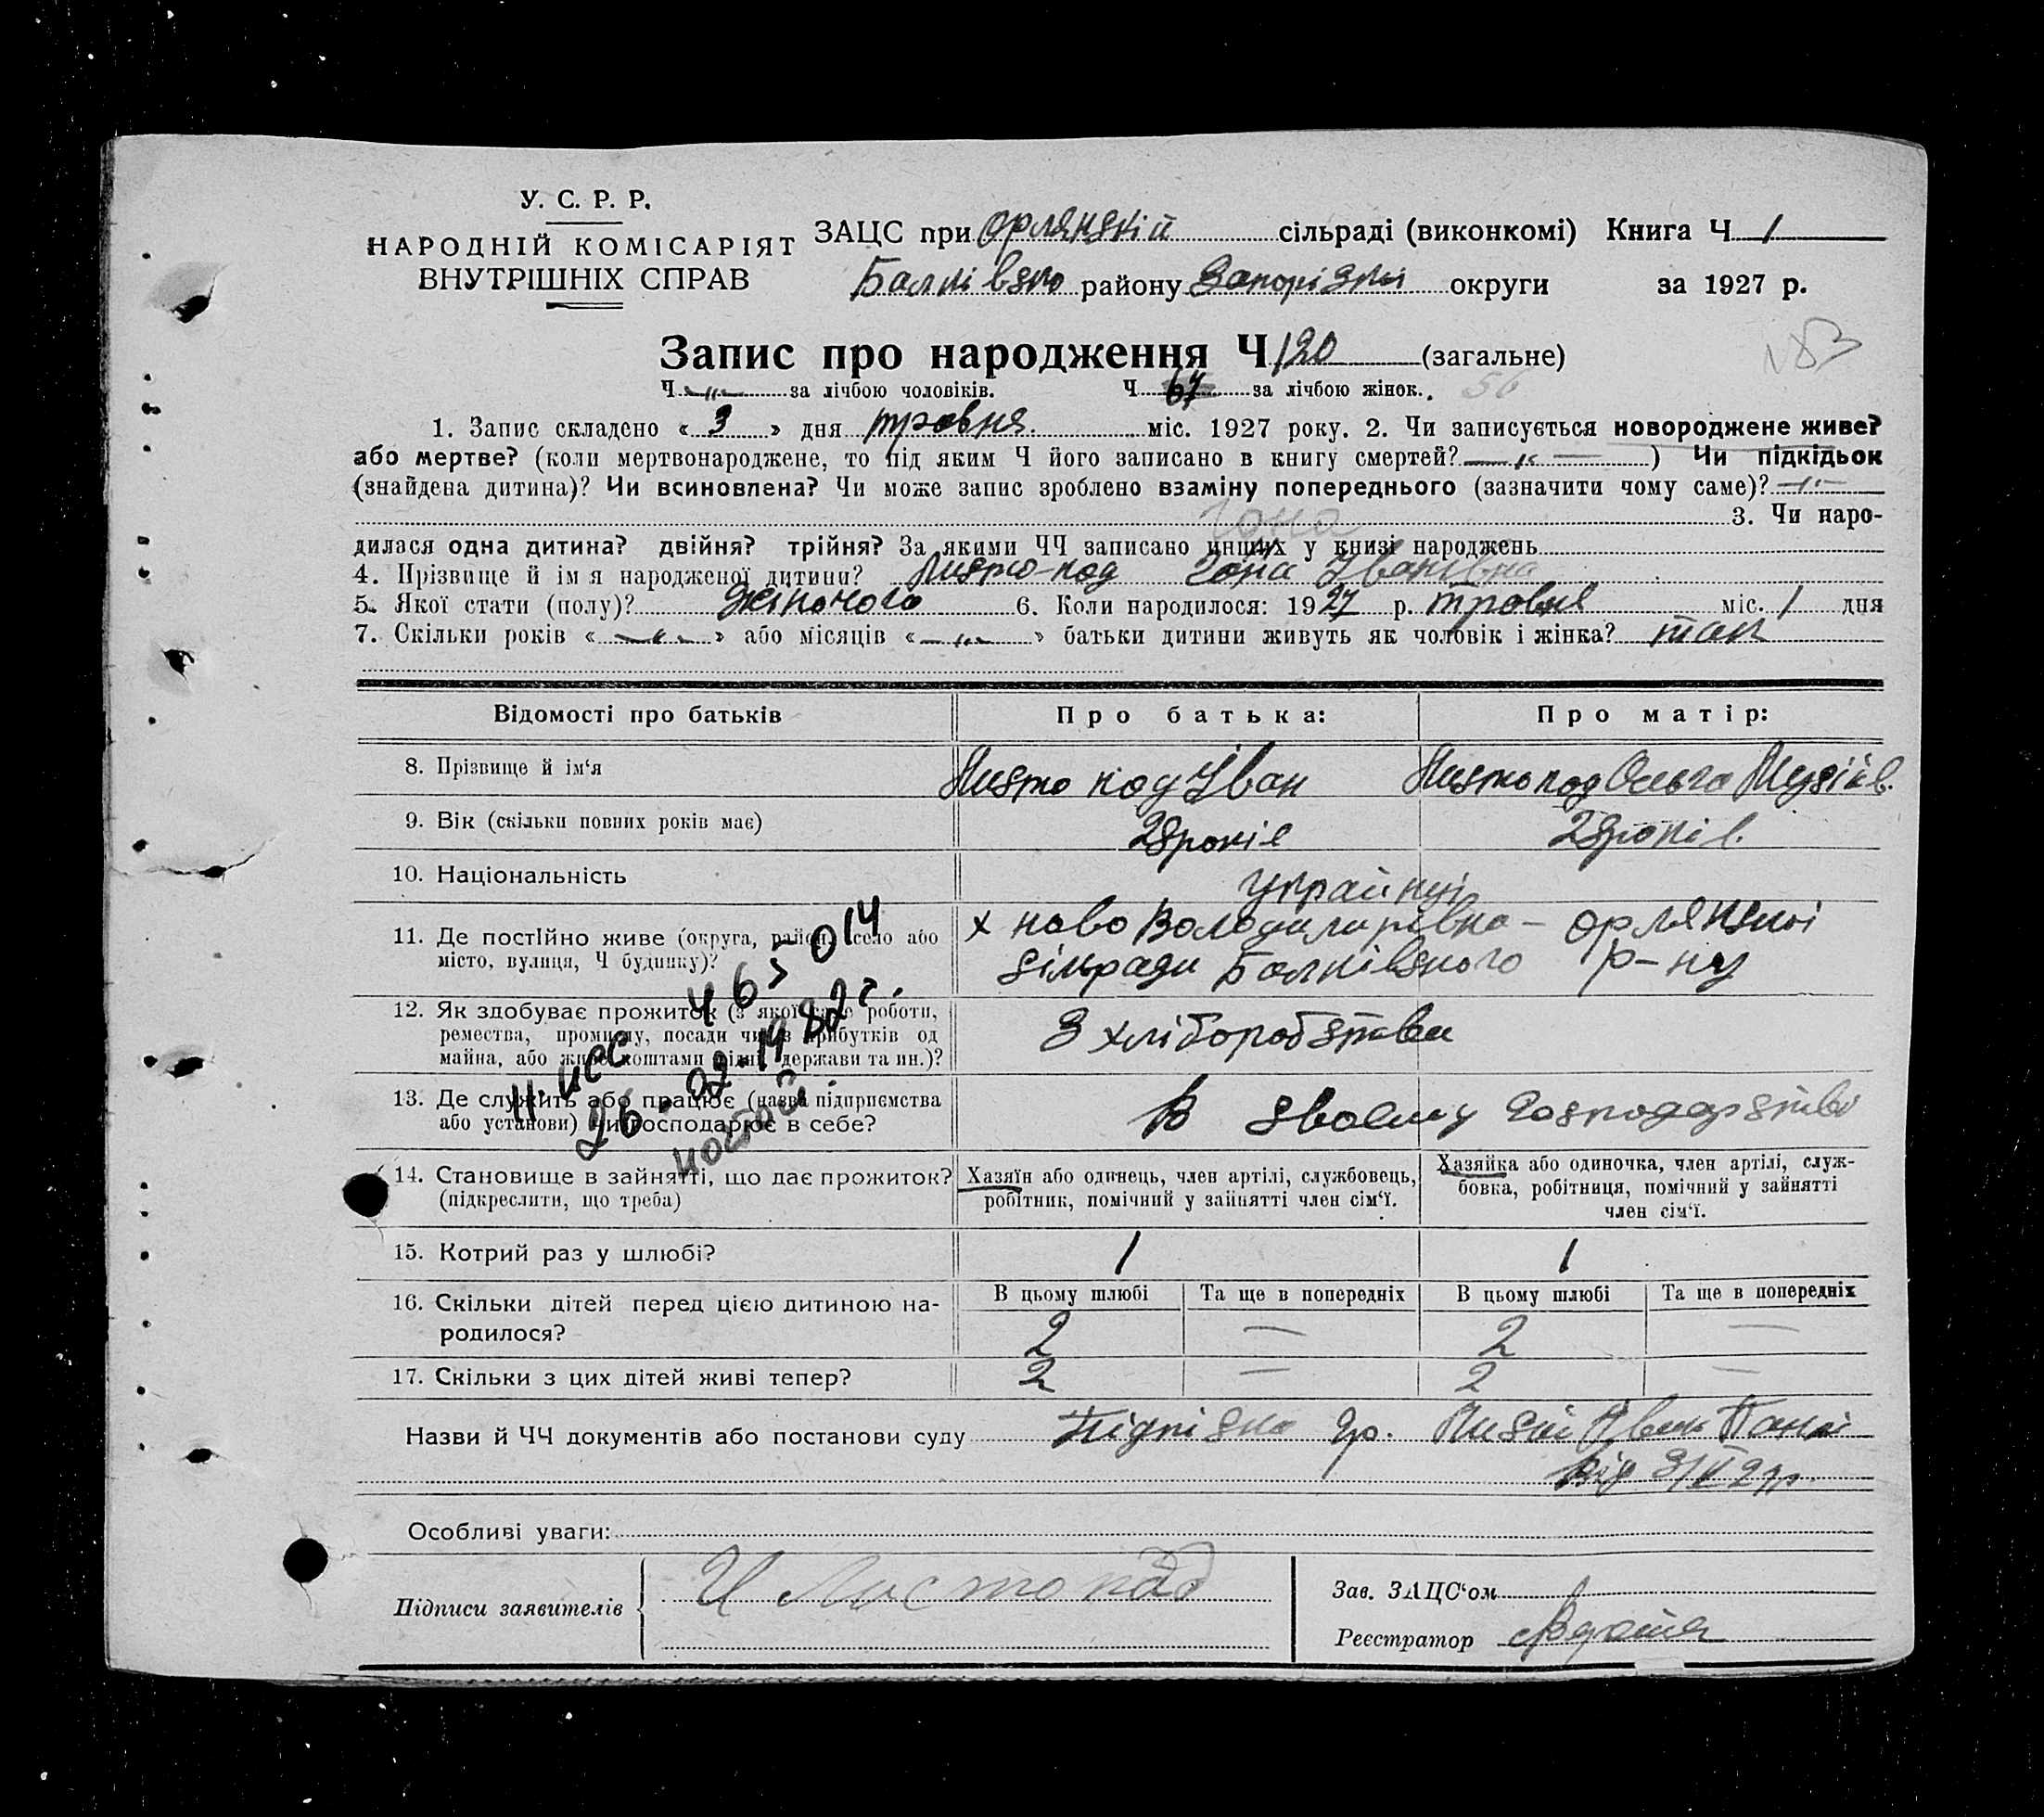 У. С. Р. Р.
НАРОДНІЙ КОМІСАРІЯТ
ВНУТРІШНІХ СПРАВ
ЗАЦС при Орлянській сільраді (виконкомі) Книга Ч 1
Балківсько району Запорізької округи за 1927 р.
N83
Запис про народження Ч 120 (загальне)
Ч -"- за лічбою чоловіків. Ч 67 за лічбою жінок. 56
1. Запис складено « 3 » дня травня міс. 1927 року. 2. Чи записується новороджене живе?
або мертве? (коли мертвонароджене, то під яким Ч його записано в книгу смертей? -"- ) Чи підкідьок
(знайдена дитина)? Чи всиновлена? Чи може запис зроблено взаміну попереднього (зазначити чому саме)? -"-
3. Чи наро-
дилася одна дитина? двійня? трійня? За якими ЧЧ записано инших у книзі народжень
4. Прізвище й ім я народженої дитини? Листо-пад Іванівна
5. Якої стати (полу)? жіночого 6. Коли народилося: 1927 р. травня міс. 1 дня
7. Скільки років « -"- » або місяців « -"- » батьки дитини живуть як чоловік і жінка? так
Відомості про батьків Про батька: Про матір:
8. Прізвище й ім‘я Листо пад Іван Листопад Ольга
9. Вік (скільки повних років має) 28 років 28 років.
10. Національність Українці
11. Де постійно живе (округа, район, село або
місто, вулиця, Ч будинку)? х ново Володимирівка – Орлянської
сільради Балківського р-ну
12. Як здобуває прожиток (з якої саме роботи,
ремества, промислу, посади чи з прибутків од
майна, або живе коштами рідні, держави та ин.)? З хліборобства
13. Де служить або працює (назва підприємства
або установи) чи господарює в себе? В своєму господарстві
465014
26.02.1982 г.
14. Становище в зайнятті, що дає прожиток?
(підкреслити, що треба)
Хазяїн або одинець, член артілі, службовець,
робітник, помічний у зайнятті член сім‘ї.
Хазяйка або одиночка, член артілі, служ-
бовка, робітниця, помічний у зайнятті
член сім‘ї.
15. Котрий раз у шлюбі? 1 1
В цьому шлюбі Та ще в попередніх В цьому шлюбі Та ще в попередніх
16. Скільки дітей перед цією дитиною на-
родилося? 2 — 2 —
17. Скільки з цих дітей живі тепер? 2 — 2 —
Назви й ЧЧ документів або постанови суду Підписка гр.
від
Особливі уваги:
Підписи заявителів И Листопад
Зав. ЗАЦС‘ом
Реєстратор